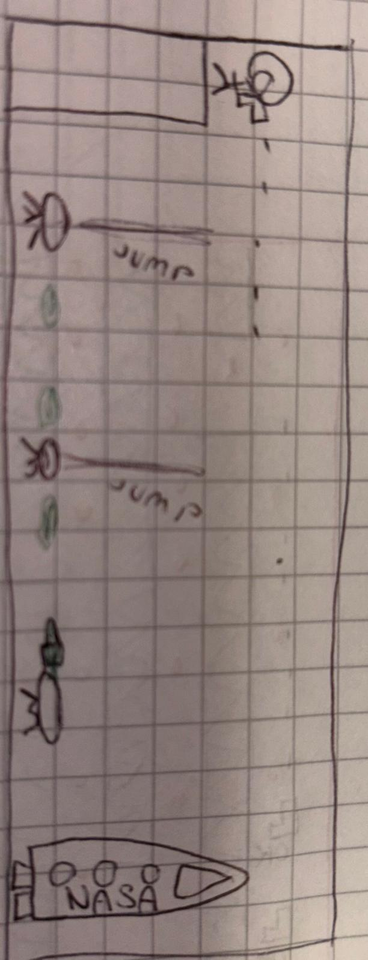 JUMP
JUMP
NASA